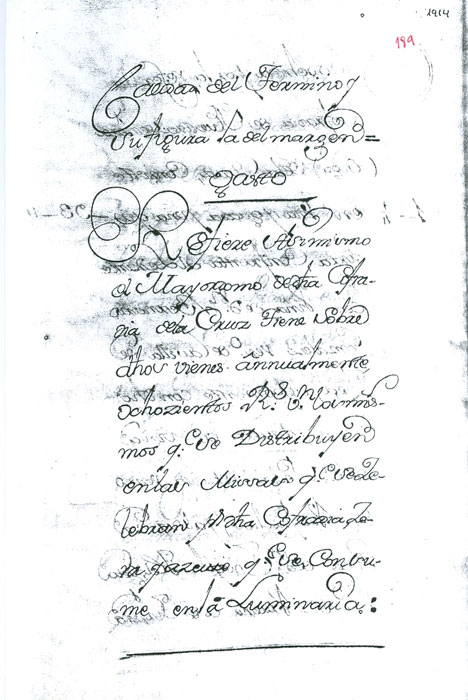 1914
189
Cavan del Termino y
su figura la del margen =
Gasto
Refiere Asimismo
el Mayordomo de dha Cofra-
dia de la Cruz tiene sobre
dhos vienes annualmente,
ochozientos R.s V.n los mis-
mos q.e se Distribuyen
en las Missas q.e se Ze-
lebran p.r dha Cofradia Ze-
ra y azeite q.e se Consu-
me en la Luminaria: